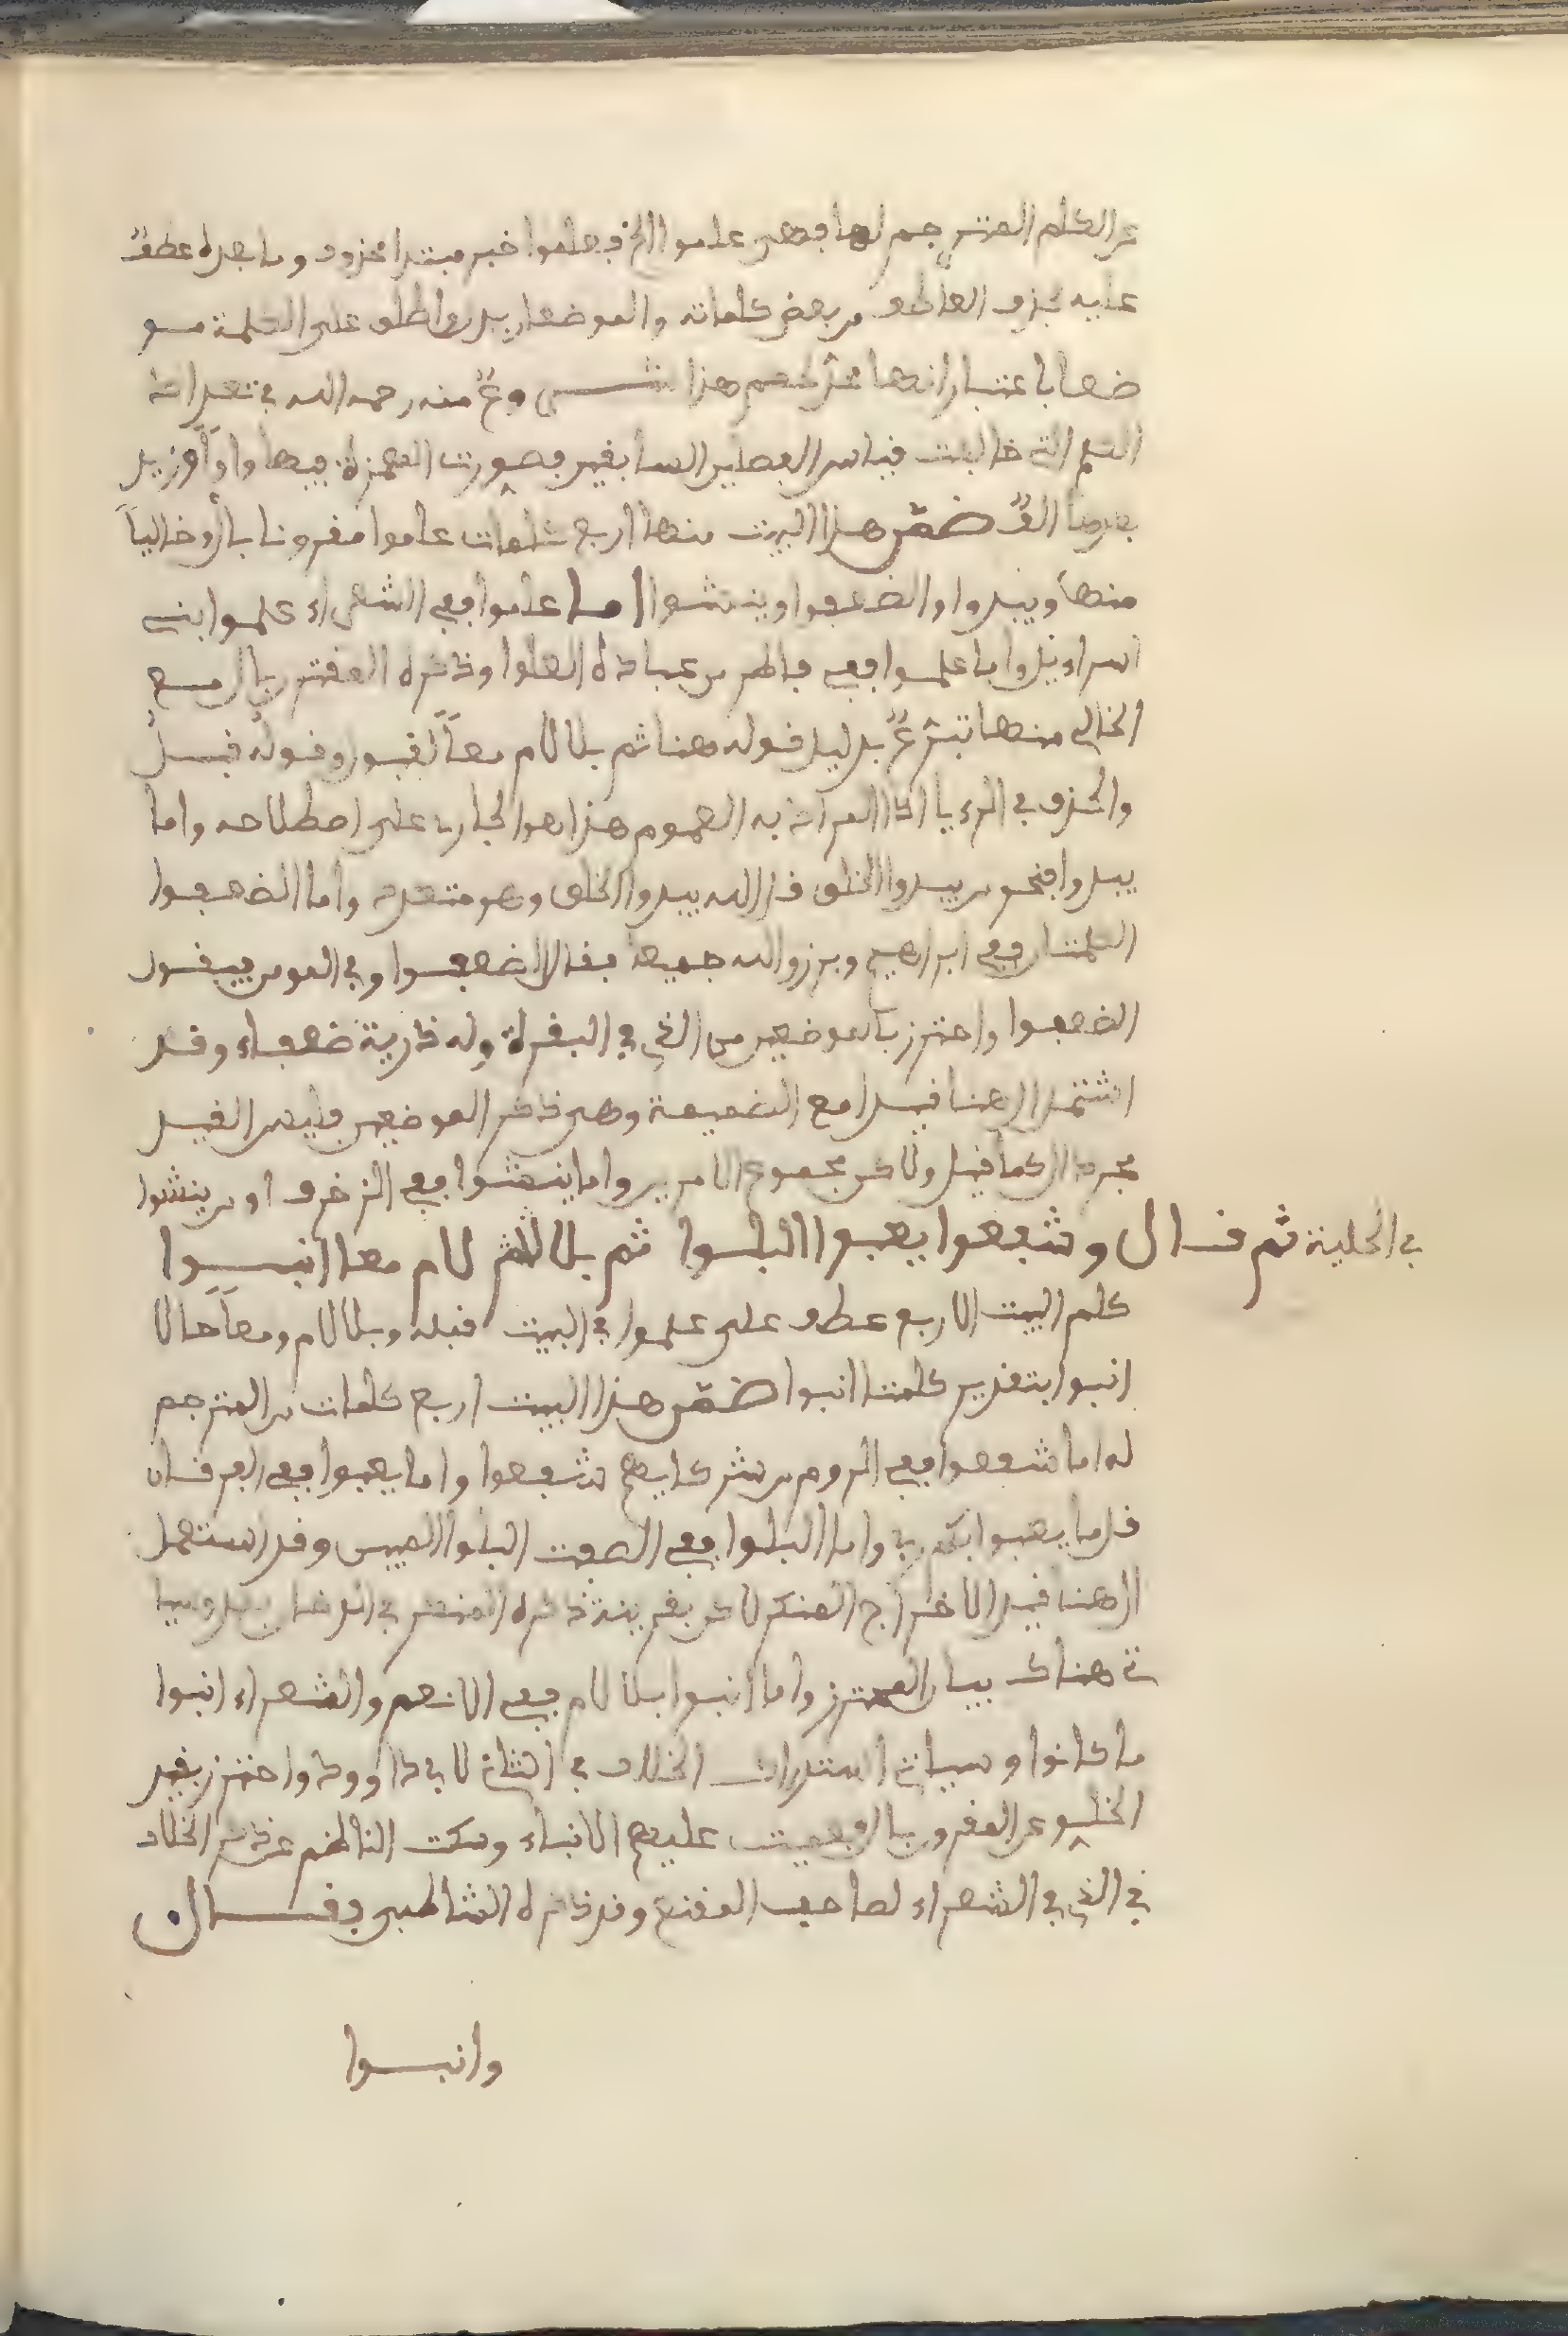 عن الكلم المترجم لها فهي علموا الخ فعلموا خبر مبتدإ محذوف وما بعده عطفٌ
عليه بحذف العاطف من بعض كلماته والموضعان بدل واطلق على الكلمة مو
ضعا باعتبار انها محل لحكم هذا شـــيء وقع منه رحمه الله في تعداد
الكلم التي خالفت قياس الفصلين السابقين فصورت الهمزة فيها واواً وزيد
بعدها الفٌ ضمّن هذا البيت منها اربع كلمات علموا مقرونا بال وخاليا
منها ويبدوا والضعفوا وينشوا اما علموا ففي الشعراء علموا بني
اسراءيل واما علموا ففي فاطر من عباده العلموا وذكره المقترن بال مع
الخالي منها تبرع بدليل قوله هنا ثم بلا لام معاً لقيد وقوله قبل
والحذف في الرءيا اذا المراد به العموم هذا هو الجاري على اصطلاحه واما
يبدوا فنحو من يبدوا الخلق قل الله يبدوا الخلق وهو متعدد واما الضعفوا
الكلمتان ففي ابراهيم وبرزوا لله جميعا فقال الضعفوا وفي المومن فيقول
الضعفوا واحترز بالموضعين من الذي في البقرة وله ذرية ضعفاء وقد
اشتمل ال هنا قيدا مع الضميمة وهي ذكر الموضعين فليس القيد
مجرد ال كما قيل ولاكن مجموع الامرين واما ينشوا ففي الزخرف او من ينشوا
في الحلية ثم قـــال وشفعوا يعبوا البلوا ثم بلا لام معا انبـــوا
كلم البيت الاربع عطف على علموا في البيت قبله وبلا لام ومعاً حالا
انبوا بتقدير كلمتا انبوا ضمّن هذا البيت اربع كلمات من المترجم
له اما شفعوا ففي الروم من شركايهم شفعوا واما يعبوا ففي الفرقان
قل ما يعبوا بكم ربي واما البلوا ففي الصفت البلوا المبين وقد استعمل
ال هنا قيدا لاخراج المنكر لاكن بقرينة ذكره المنكر في الدخان بعد وسيا
تي هناك بيان المحترز واما انبوا بلا لام ففي الانعم والشعراء انبوا
ما كانوا وسياتي استدراك الخلاف في الثاني لابي داوود واحترز بقيد
الخلو عن المقرون بال فعميت عليهم الانباء وسكت الناظم عن ذكر الخلاف
في الذي في الشعراء لصاحب المقنع وقد ذكره الشاطبي فقـــال
وانبـــوا